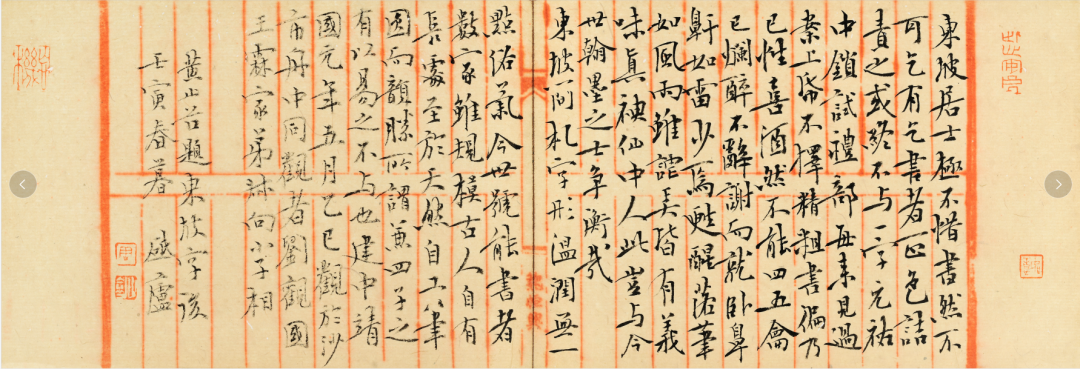 東坡居士極不惜書然不
可乞有乞書者正色詰
責之或終不与一字元祐
中鎖試禮部每来見過
案上帋不擇精粗書徧乃
已性喜酒然不能四五龠
已爛醉不辭謝而就卧鼻
鼾如雷少焉甦醒落筆
如風雨雖謔弄皆有義
味真神仙中人此豈与今
世翰墨之士争衡哉
東坡简札字形温潤無一
點俗氣今世號能書者
數家雖規模古人自有
長處至於天然自工筆
圓而韻勝所謂兼四子之
有以易之不与也建中靖
國元年五月乙巳觀於沙
市舟中同觀者劉觀國
王霖家弟叔向小子相
黄山谷題東坡字後
壬寅春暮 廬